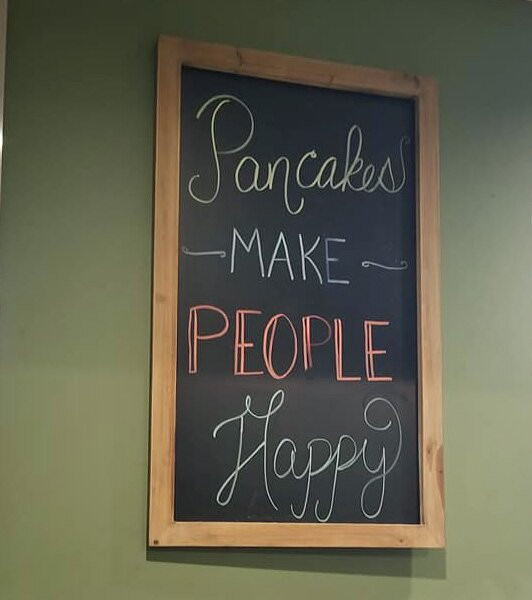 Pancakes
MAKE
PEOPLE
Happy